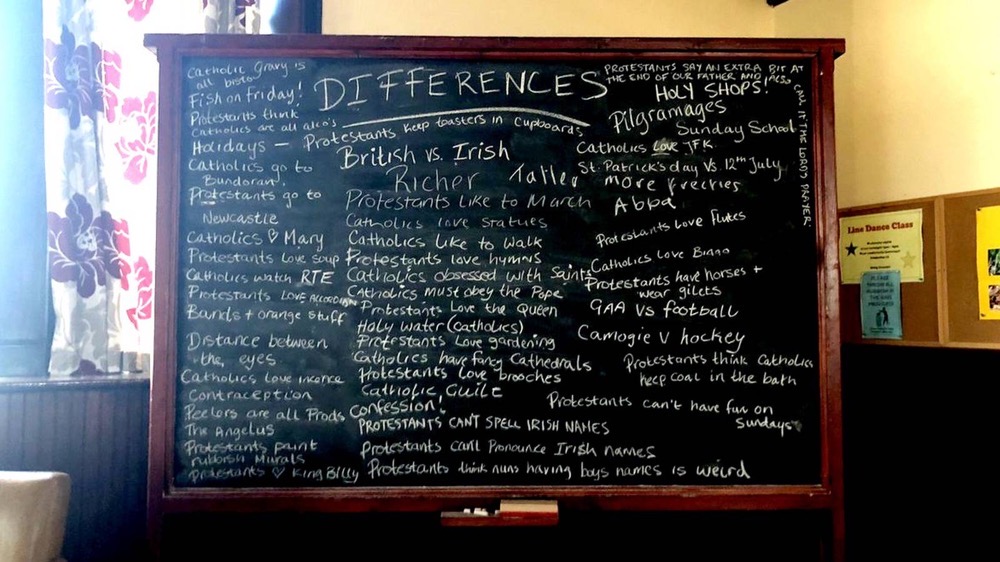 DIFFERENCES
Catholic Gravy is
all bisto
Fish on Friday!
Protestants think
Catholics are all alco's
Holidays —
Catholics go to
Bundoran.
Protestants go to
Newcastle
Catholics ♡ Mary
Protestants Love soup
Catholics watch RTE
Protestants LOVE ACCORDION
Bands + orange stuff
Distance between
the eyes
Catholics Love incence
Contraception
Peelers are all Prods
The Angelus
Protestants paint
rubbish Murals
Protestants ♡ King Billy
Protestants keep toasters in cupboards
British vs. Irish
Richer Taller
Protestants Like to March
Catholics love statues
Catholics like to walk
Protestants love hymns
Catholics obsessed with Saints
Catholics must obey the Pope
Protestants Love the Queen
Holy water (Catholics)
Protestants Love gardening
Catholics have fancy Cathedrals
Protestants love brooches
Catholic Guilt
Confession!
PROTESTANTS CAN'T SPELL IRISH NAMES
Protestants can't Pronounce Irish names
Protestants think nuns having boys names is weird
PROTESTANTS SAY AN EXTRA BIT AT
THE END OF OUR FATHER AND ALSO
CALL IT THE LORD'S PRAYER
HOLY SHOPS!
Pilgramages
Sunday School
Catholics Love JFK.
St. Patrick's day VS. 12th July
more Freckles
Abba
Protestants Love flutes
Catholics Love Bingo
Protestants have horses +
wear gilets
GAA VS football
Camogie V hockey
Protestants think Catholics
keep coal in the bath
Protestants can't have fun on
Sundays
Line Dance Class